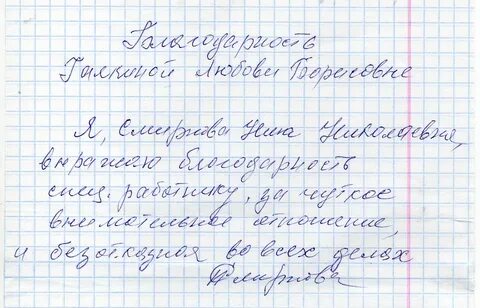 Благодарность
Галкиной Любови Борисовне
Я, Смирнова Нина Николаевна,
выражаю благодарность
спец. работнику, за чуткое
внимательное отношение,
и безотказная во всех делах
Смирнова